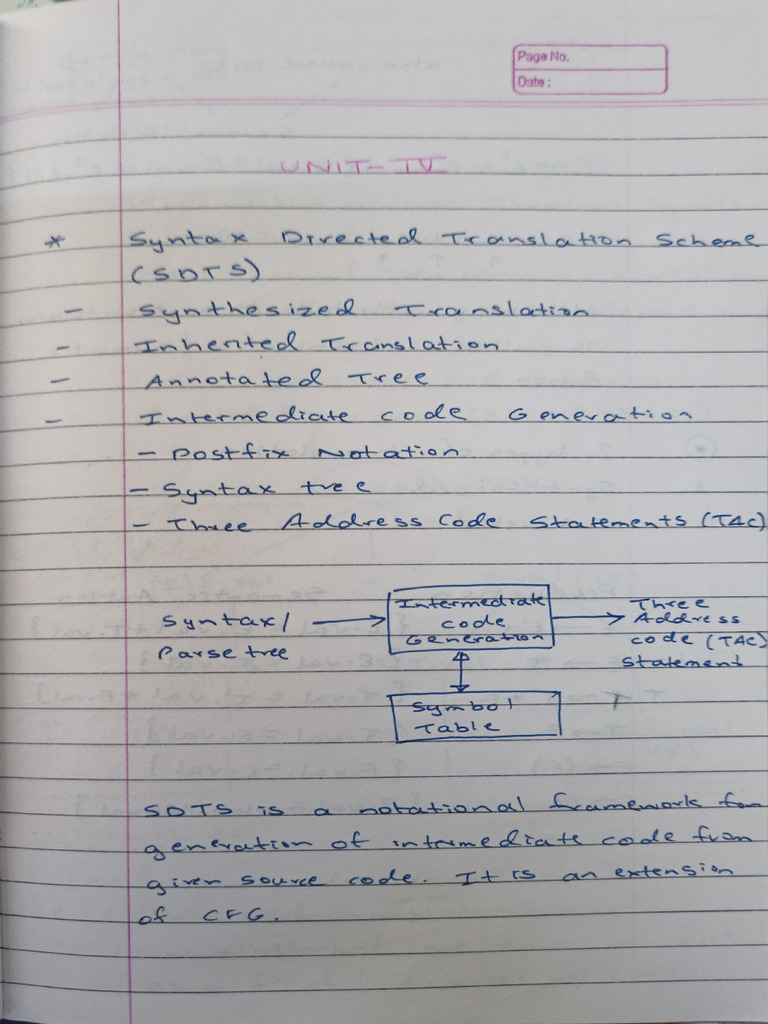 Page No.
Date :
UNIT-IV
* Syntax Directed Translation Scheme
(SDTS)
- Synthesized Translation
- Inherited Translation
- Annotated Tree
- Intermediate code Generation
- Postfix Notation
- Syntax tree
- Three Address Code Statements (TAC)
Syntax/
Parse tree
Intermediate
code
Generation
Three
Address
code (TAC)
Statement
Symbol
Table
SDTS is a notational framework for
generation of intermediate code from
given source code. It is an extension
of CFG.